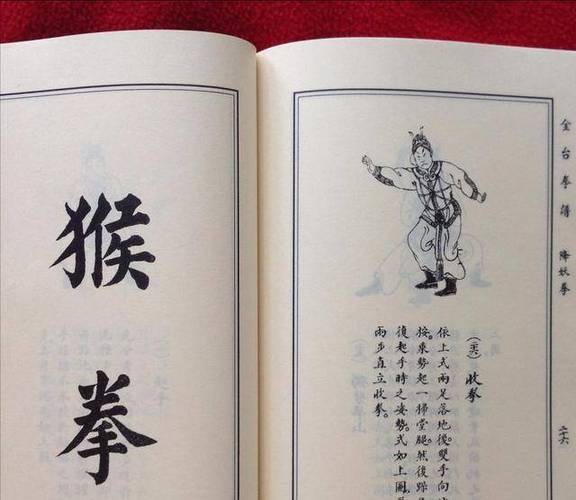 金台拳譜 降妖拳 二十六
收拳
依上式兩足落地後。雙手向
按。乘勢起一掃堂腿。然後
復起手時之姿勢。式如上圖。
兩步直立收拳。
猴拳